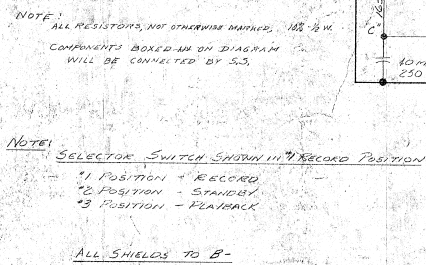 NOTE:
ALL RESISTORS, NOT OTHERWISE MARKED, 10% 1/2 W.
COMPONENTS BOXED ON DIAGRAM
WILL BE CONNECTED BY S.S.
"C"
40 m
250
NOTE:
SELECTOR SWITCH SHOWN IN #1 RECORD POSITION
#1 POSITION - RECORD
#2 POSITION - STANDBY
#3 POSITION - PLAYBACK
ALL SHIELDS TO B-